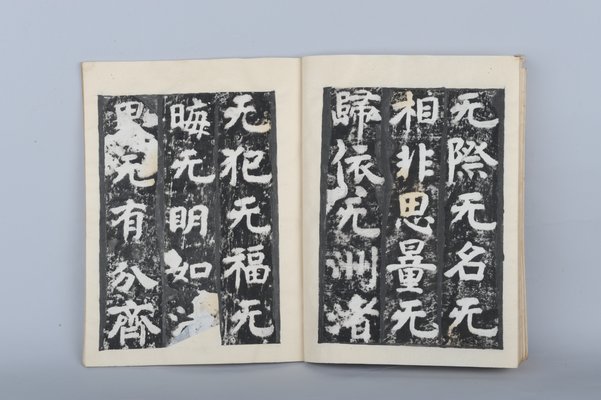 无際无名无
相非思量无
歸依无洲渚
无犯无福无
晦无明如法
界无有分齊